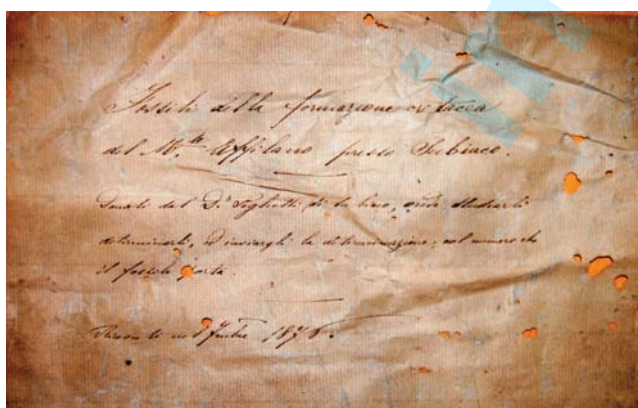 Fossili della formazione cretacea
del M.te Affilano presso Subiaco.
Donati dal D.r di onde studiarli
determinarli, ed inviargli la determinazione, col numero che
il fossile porta.
Ricevuti 1876.